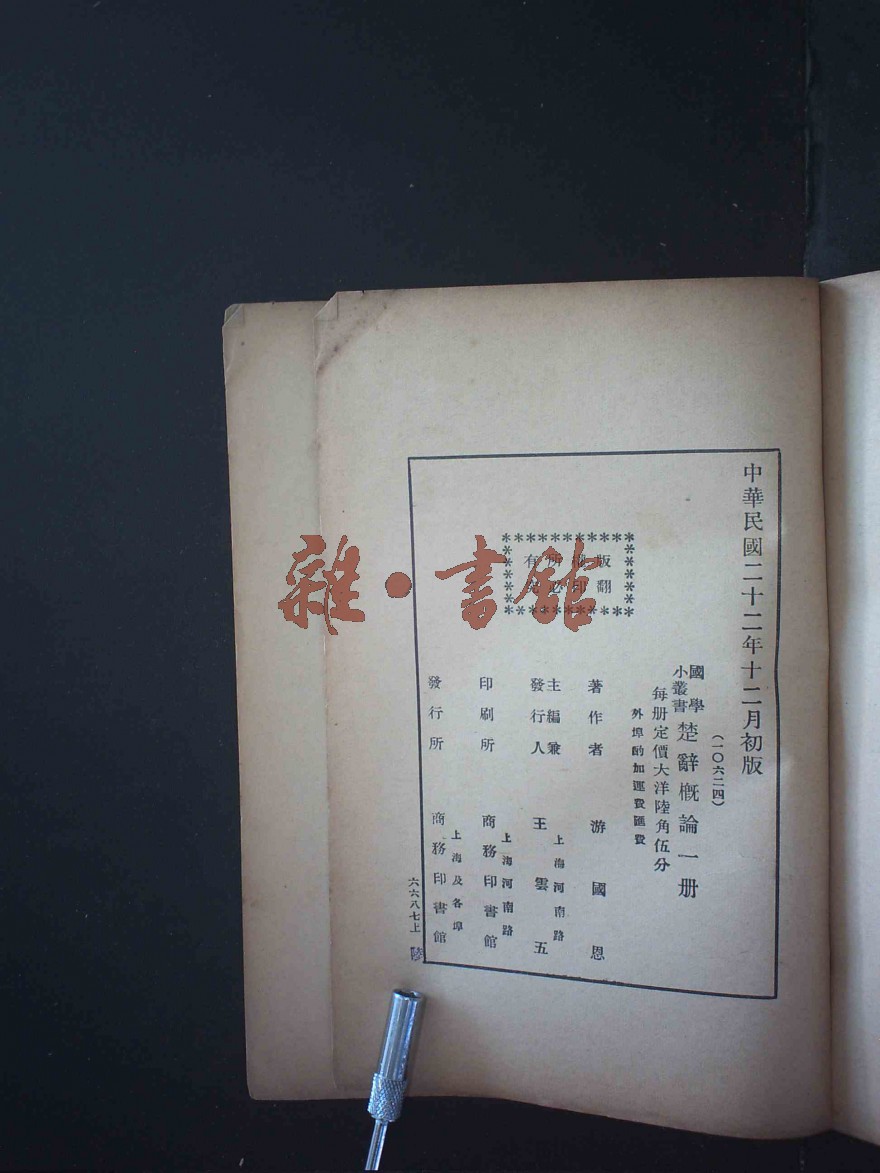 中華民國二十二年十二月初版
(一〇六二四)
國學
小叢書
楚辭概論一册
每册定價大洋陸角伍分
外埠酌加運費匯費
版權所有
翻印必究
著作者 游國恩
主編兼
發行人
上海河南路
王雲五
印刷所
上海河南路
商務印書館
發行所
上海及各埠
商務印書館
六六八七上
雜·書館